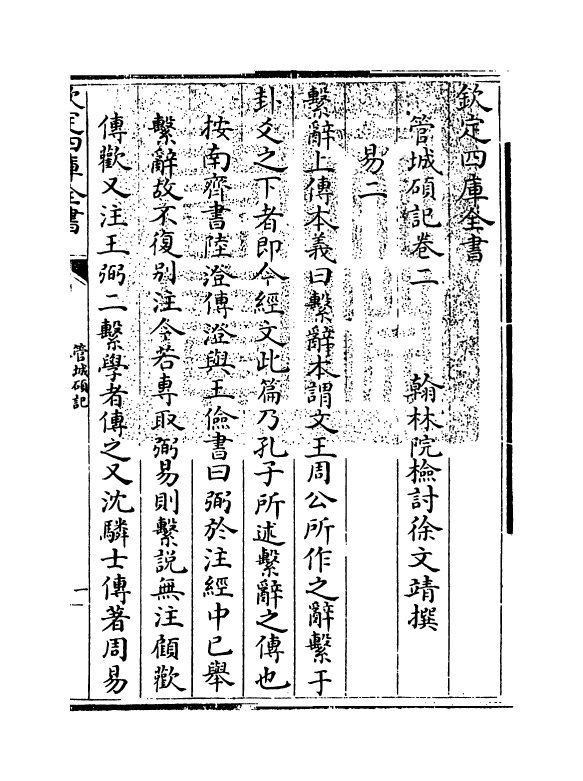 欽定四庫全書
管城碩記卷二　翰林院檢討徐文靖撰
易二
繫辭上傳本義曰繫辭本謂文王周公所作之辭繫于
卦爻之下者即今經文此篇乃孔子所述繫辭之傳也
按南齊書陸澄傳澄與王儉書曰弼於注經中已舉
繫辭故不復别注今若專取弼易則繫説無注顧歡
傳歡又注王弼二繫學者傳之又沈驎士傳著周易
欽定四庫全書
管城碩記
一